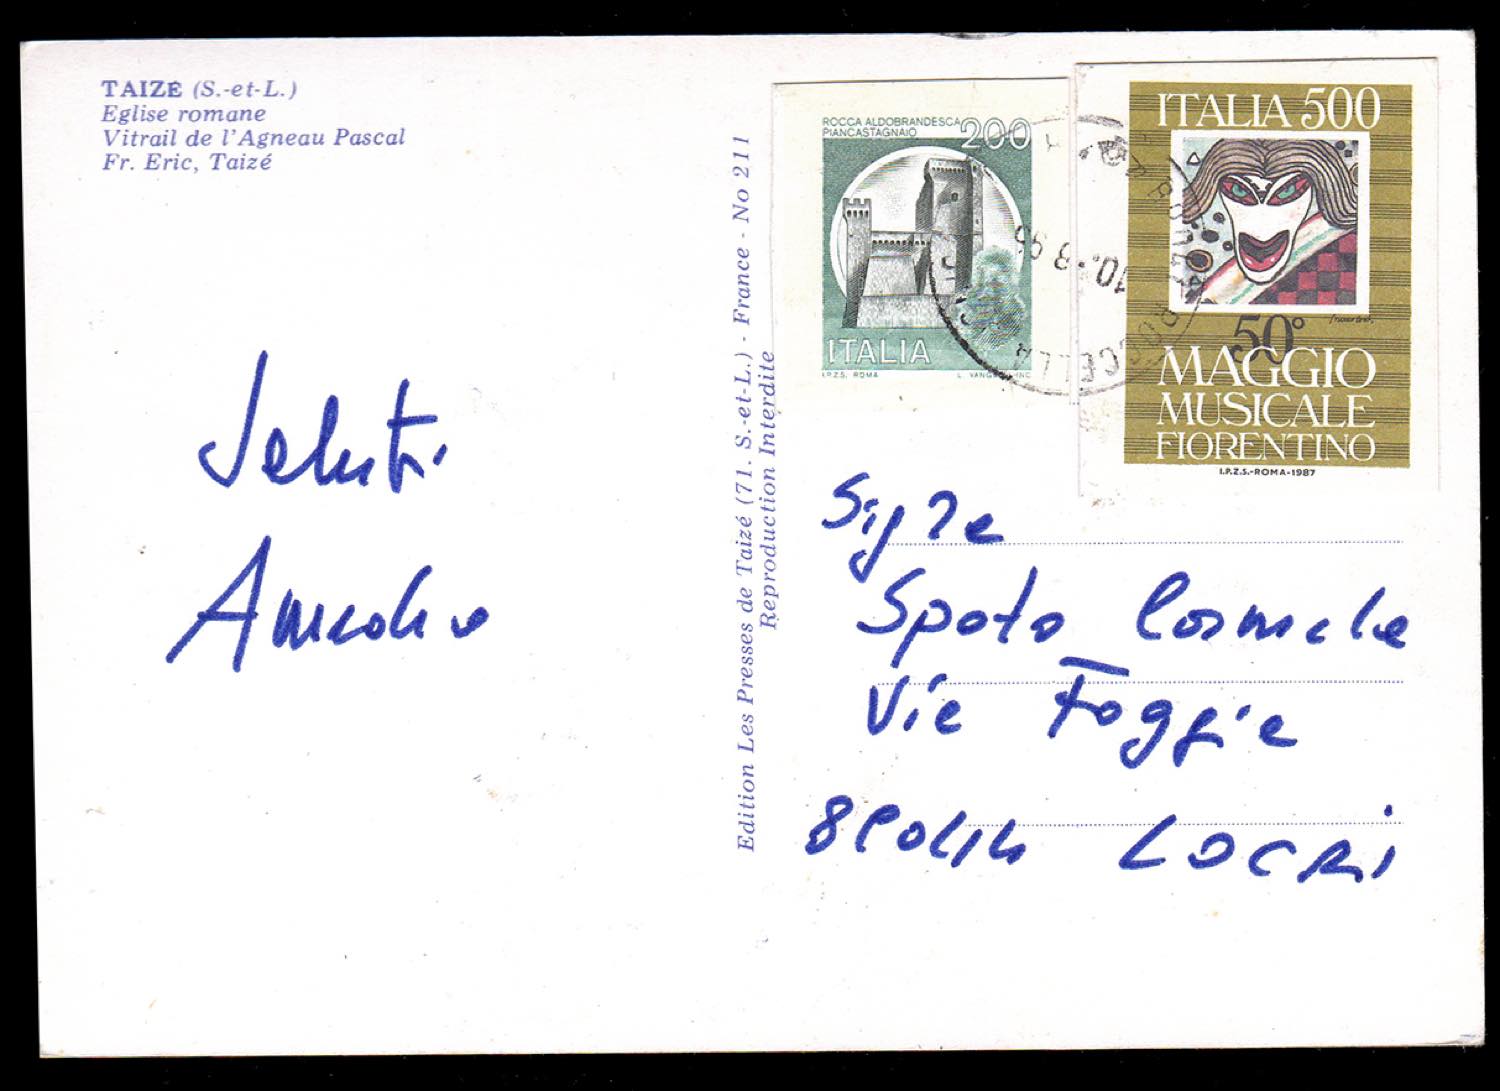 TAIZÉ (S.-et-L.)
Eglise romane
Vitrail de l'Agneau Pascal
Fr. Eric, Taizé
Edition Les Presses de Taizé (71. S.-et-L.) - France - No 211
Reproduction Interdite
ROCCA ALDOBRANDESCA
PIANCASTAGNAIO
200
ITALIA
I.P.Z.S. ROMA
ITALIA 500
50°
MAGGIO
MUSICALE
FIORENTINO
I.P.Z.S.-ROMA-1987
10.8.95
Saluti
Amedeo
Sig.ra
Spoto Carmela
Via Foggia
89044 LOCRI